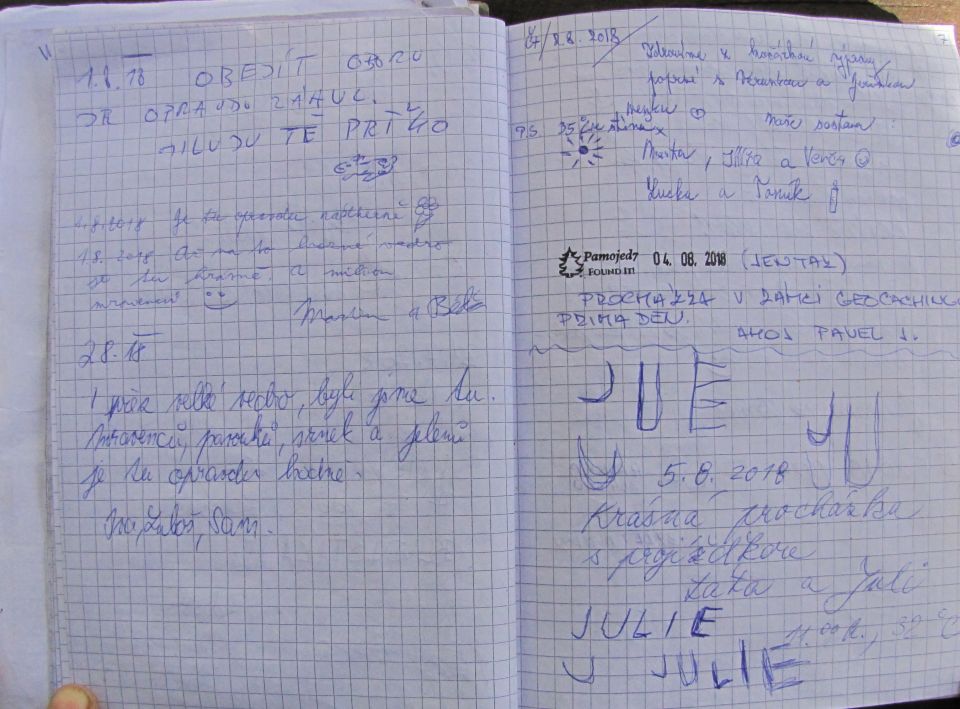 1.8.18 OBEJÍT OBORU
JE OPRAVDU ZÁHUL.
MILUJU TĚ PRTĚ 40
1.8.2018 Je tu opravdu nádherně
1.8.2018 Ač na to hodně vedro
je tu krásně. A milion
mravenců
Martin a Běta
2.8.18
I přes velké vedro, byli jsme tu.
Mravenců, pavouků, srnek a jelenů
je tu opravdu hodně.
Luboš, Sam.
ČT/2.8.2018
7
Zdravíme z kočárkové výpravy
poprvé s Verunkou a
P.S. 35°C ve stínu
naše sestava:
Mirka, Jitka a Verča
Lucka a Toník
Pamojed7
FOUND IT!
04. 08. 2018 (JENTAK)
PROCHÁZKA V RÁMCI GEOCACHINGU
PRIMA DEN.
AHOJ PAVEL J.
JUE
JU
U
5.8.2018
Krásná procházka
s prořídkou
Kata a Juli
JULIE
11.00h., 32°C
J JULIE